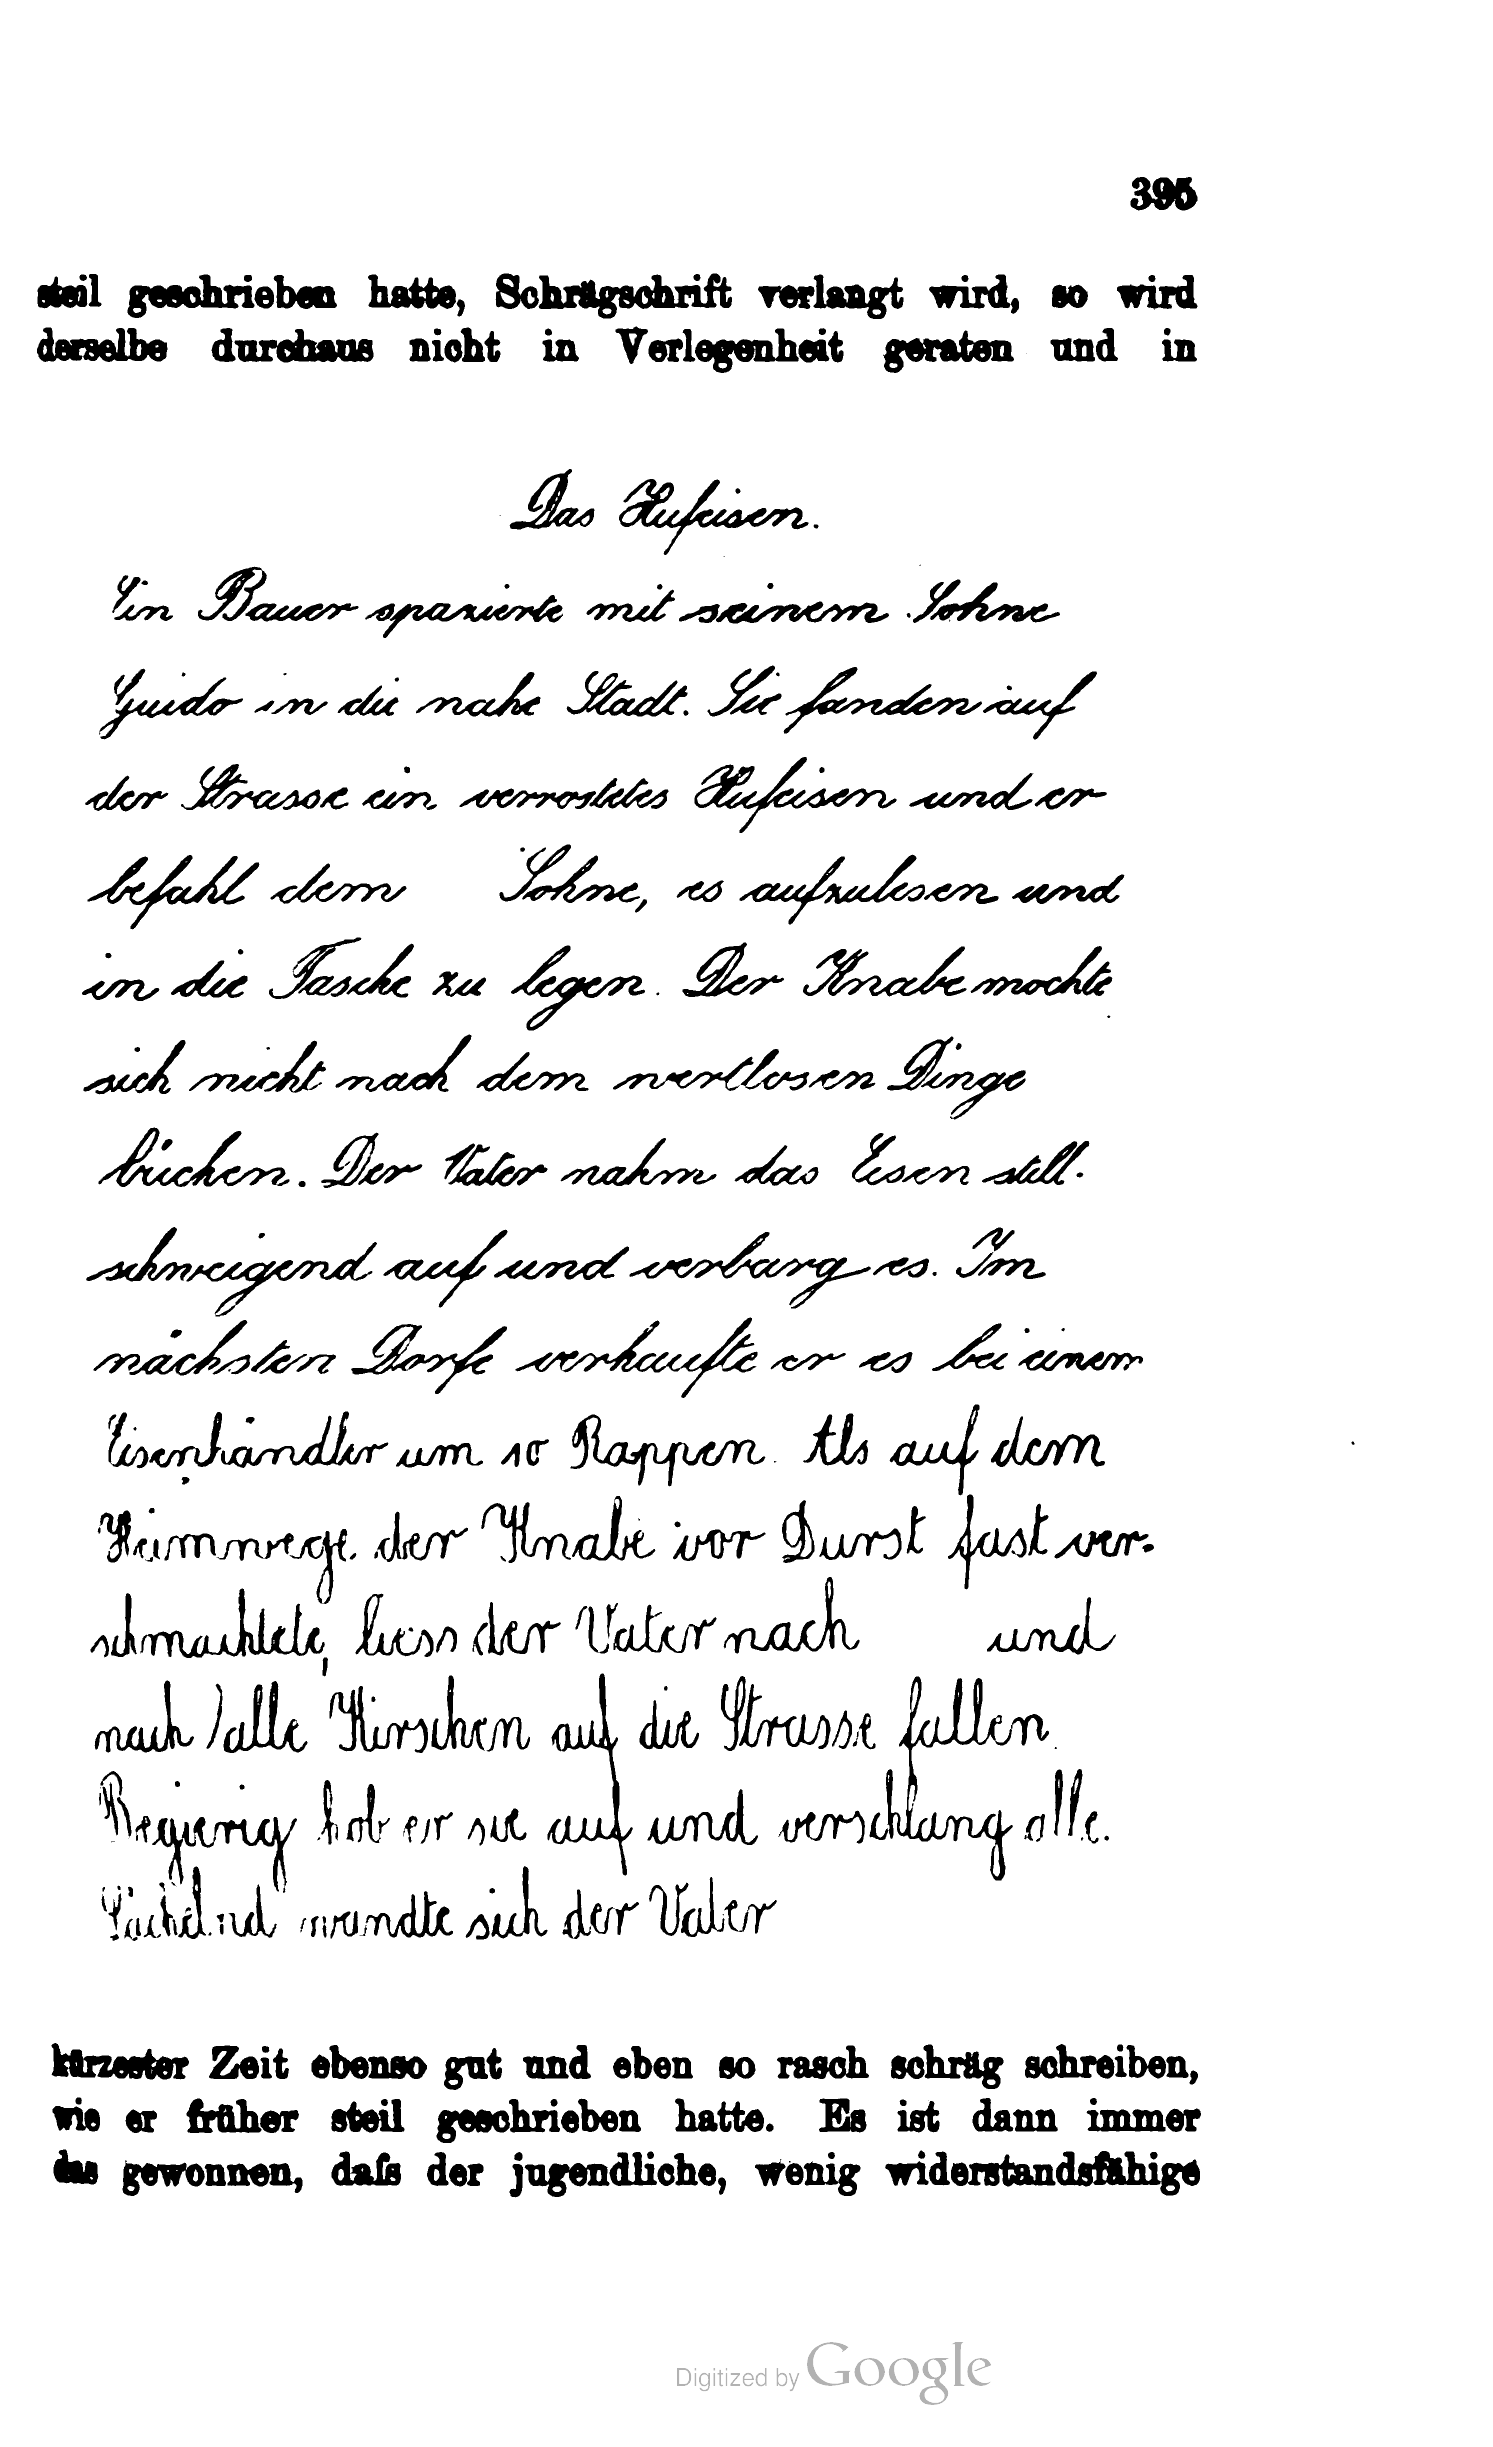 395
steil geschrieben hatte, Schrägschrift verlangt wird, so wird
derselbe durchaus nicht in Verlegenheit geraten und in
Das Hufeisen.
Ein Bauer spazierte mit seinem Sohne
Guido in die nahe Stadt. Sie fanden auf
der Strasse ein verrostetes Hufeisen und er
befahl dem Sohne, es aufzulesen und
in die Tasche zu legen. Der Knabe mochte
sich nicht nach dem wertlosen Dinge
bücken. Der Vater nahm das Eisen still-
schweigend auf und verbarg es. Im
nächsten Dorfe verkaufte er es bei einem
Eisenhändler um 10 Rappen. Als auf dem
Heimwege der Knabe vor Durst fast ver-
schmachtete, liess der Vater nach und
nach alle Kirschen auf die Strasse fallen.
Begierig hob er sie auf und verschlang alle.
Lächelnd wandte sich der Vater
kürzester Zeit ebenso gut und eben so rasch schräg schreiben,
wie er früher steil geschrieben hatte. Es ist dann immer
das gewonnen, daſs der jugendliche, wenig widerstandsfähige
Digitized by Google